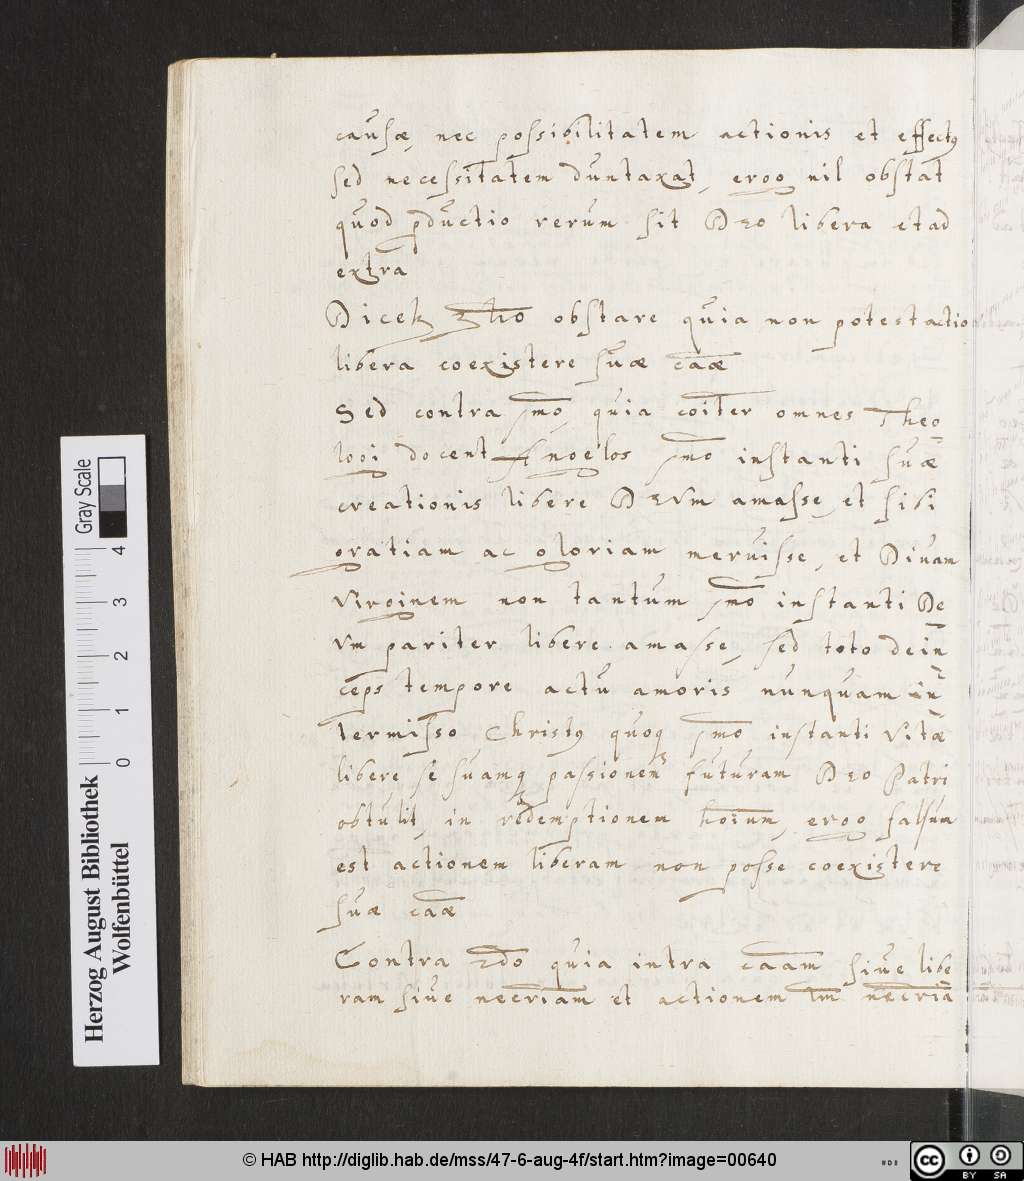 causæ, nec possibilitatem actionis et effectꝰ
sed necessitatem duntaxat, ergo nil obstat
quod ꝓductio rerum sit Deo libera et ad
extra
Dices 3tio obstare quia non potest actio
libera coexistere suæ cãæ
Sed contra pmo, quia coiter omnes Theo
logi docent Angelos pmo instanti suæ
creationis libere DEVm amasse, et sibi
gratiam ac gloriam meruisse, et Divam
Virginem non tantum pmo instanti De
Vm pariter libere amasse, sed toto dein
ceps tempore actu amoris nunquam in
termisso Christꝰ quoq pmo instanti vitæ
libere se suamq passionem futuram Deo Patri
obtulit, in redemptionem hoium, ergo falsum
est actionem liberam non posse coexistere
suæ cãæ
Contra 2do quia intra caam siue libe
ram siue necriam et actionem tm necria
Herzog August Bibliothek
Wolfenbüttel
Gray Scale
0 1 2 3 4
© HAB http://diglib.hab.de/mss/47-6-aug-4f/start.htm?image=00640
cc BY SA